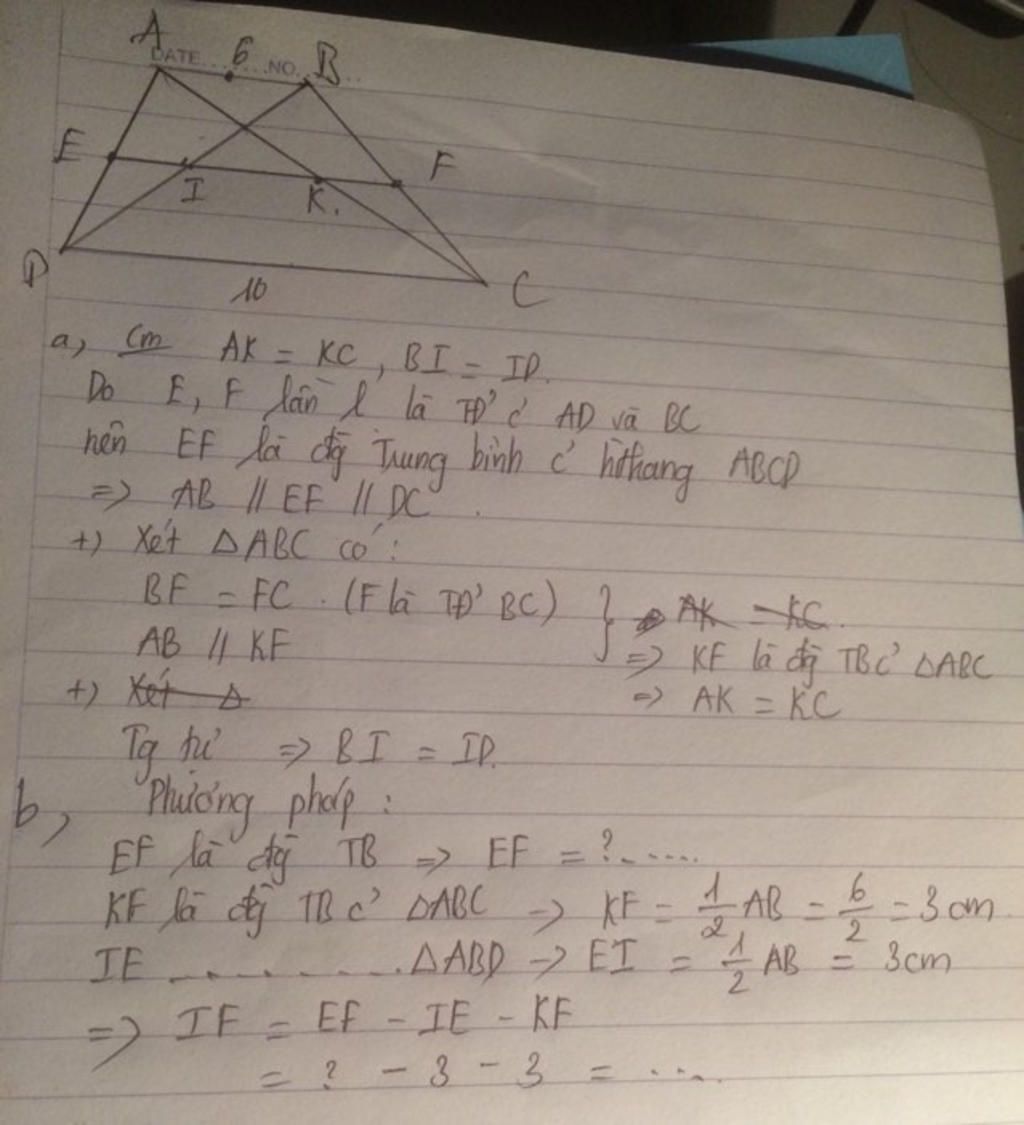 A 6 B
DATE......NO.....
E I K. F
D 10 C
a, Cm AK = KC, BI = ID.
Do E, F lần l là TĐ' c' AD và BC
nên EF là đg Trung bình c' hìthang ABCD
=> AB // EF // DC.
+) Xét Δ ABC có:
BF = FC. (F là TĐ' BC) } AK = KC.
AB // KF => KF là đg TB c' ΔABC
+) Xét Δ => AK = KC
Tg tự => BI = ID.
b, Phương pháp:
EF là đg TB => EF = ?.....
KF là đg TB c' ΔABC -> KF = 1/2 AB = 6/2 = 3 cm.
IE ......... ΔABD -> EI = 1/2 AB = 3cm
=> IF = EF - IE - KF
= ? - 3 - 3 = .....